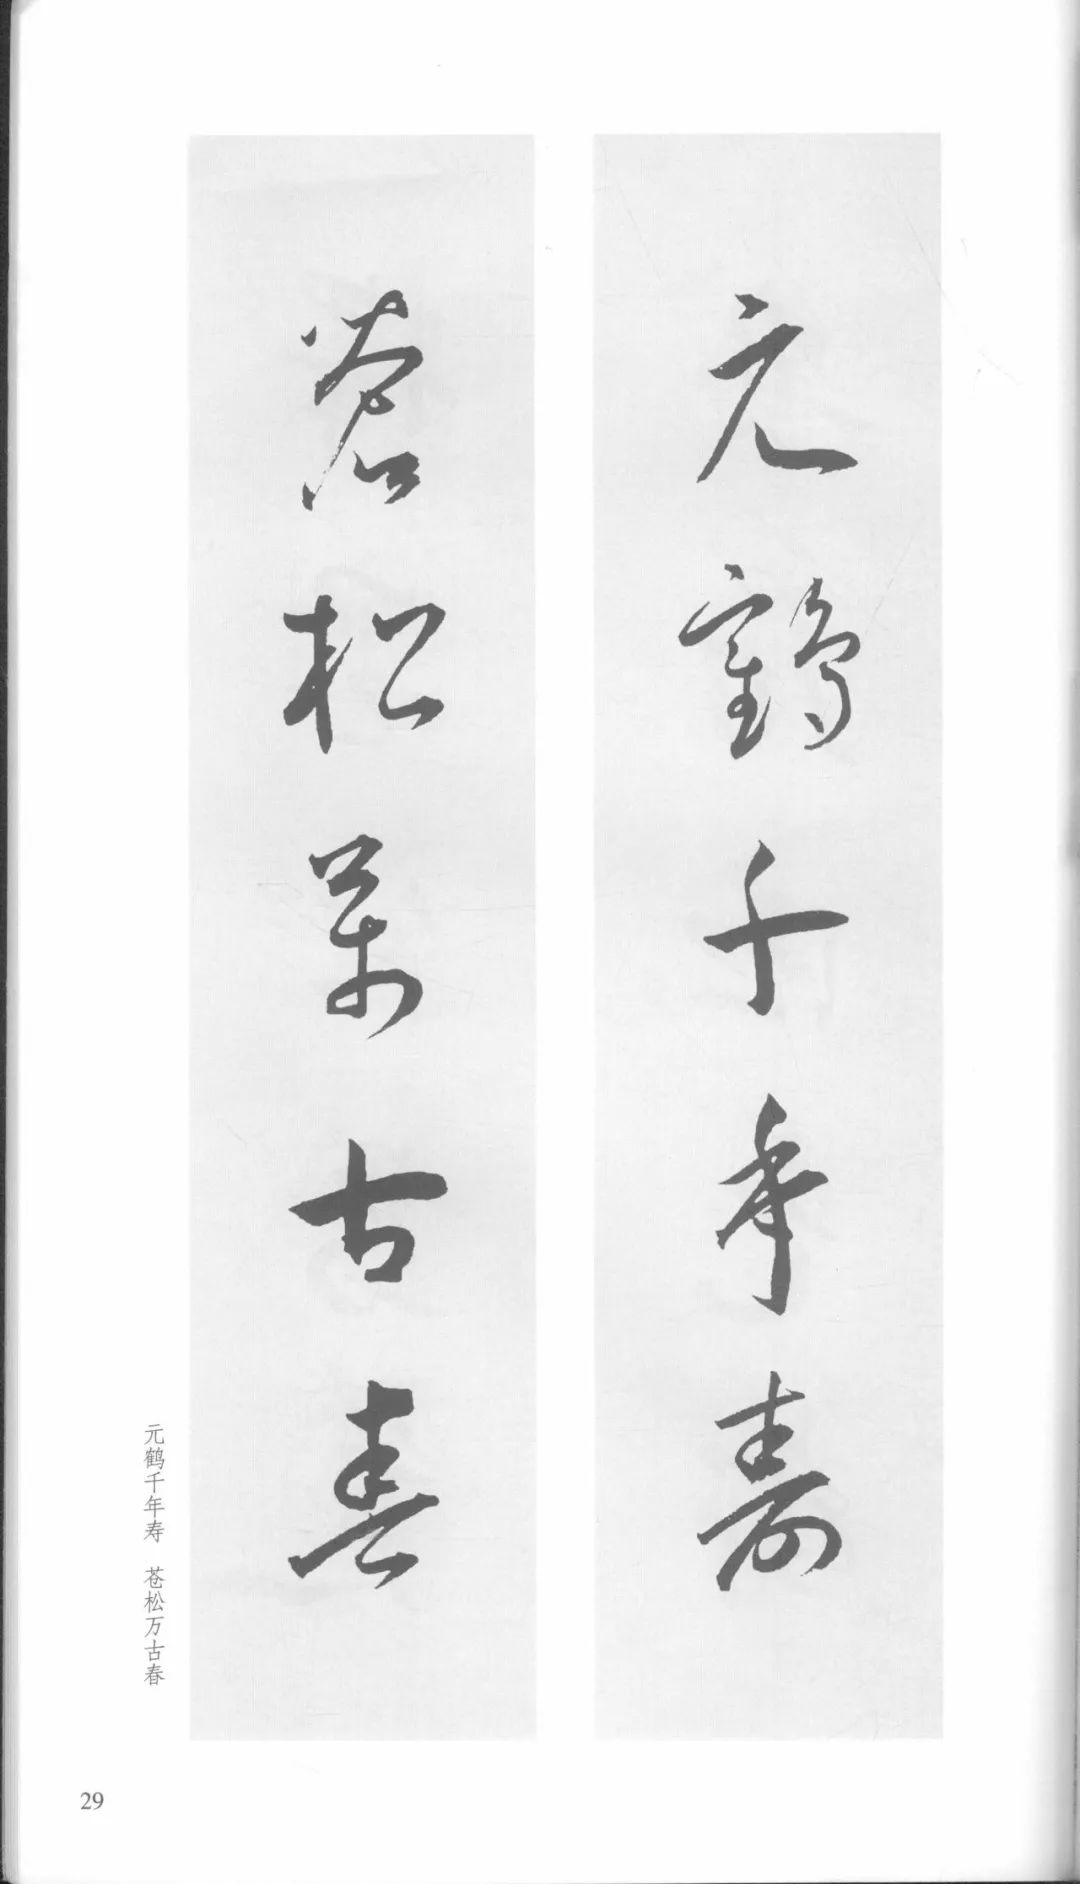 元鶴千年壽
蒼松萬古春
元鹤千年寿 苍松万古春
29